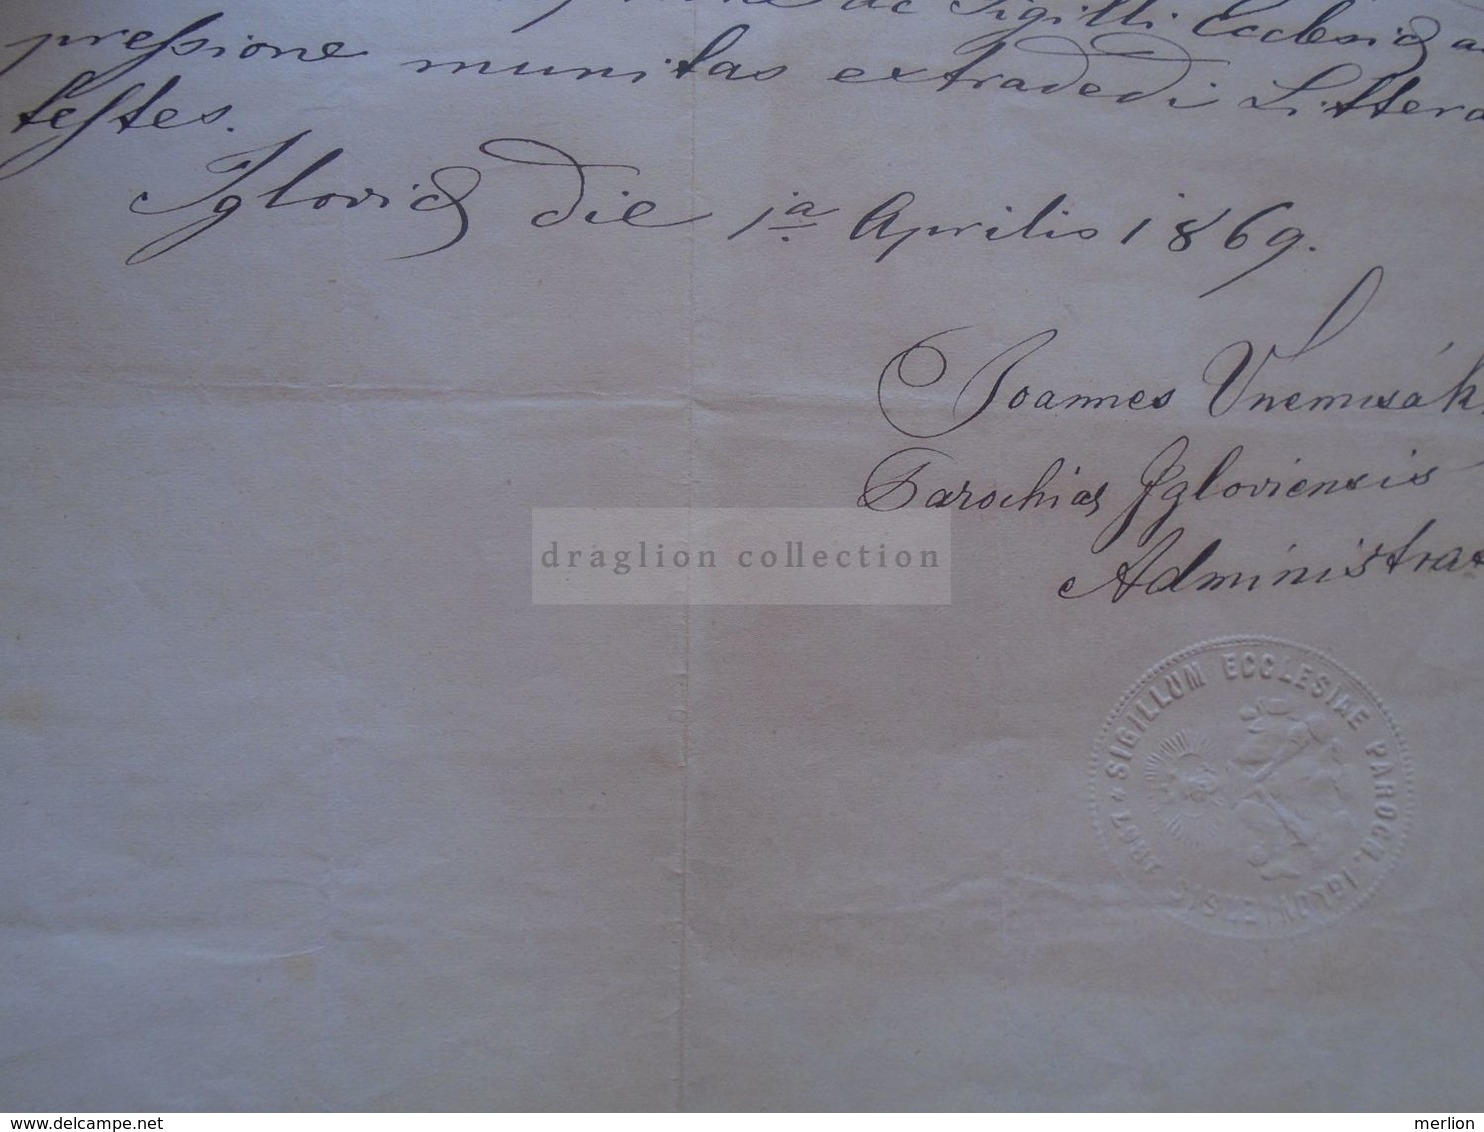 ac Sigilli Ecclesiae
pressione munitas extradedi Littera
testes.
Igloviae die 1a Aprilis 1869.
Joannes
Parochiae Igloviensis
Administrat
draglion collection
SIGILLUM ECCLESIAE PAROCH. 1867
www.delcampe.net
merlion